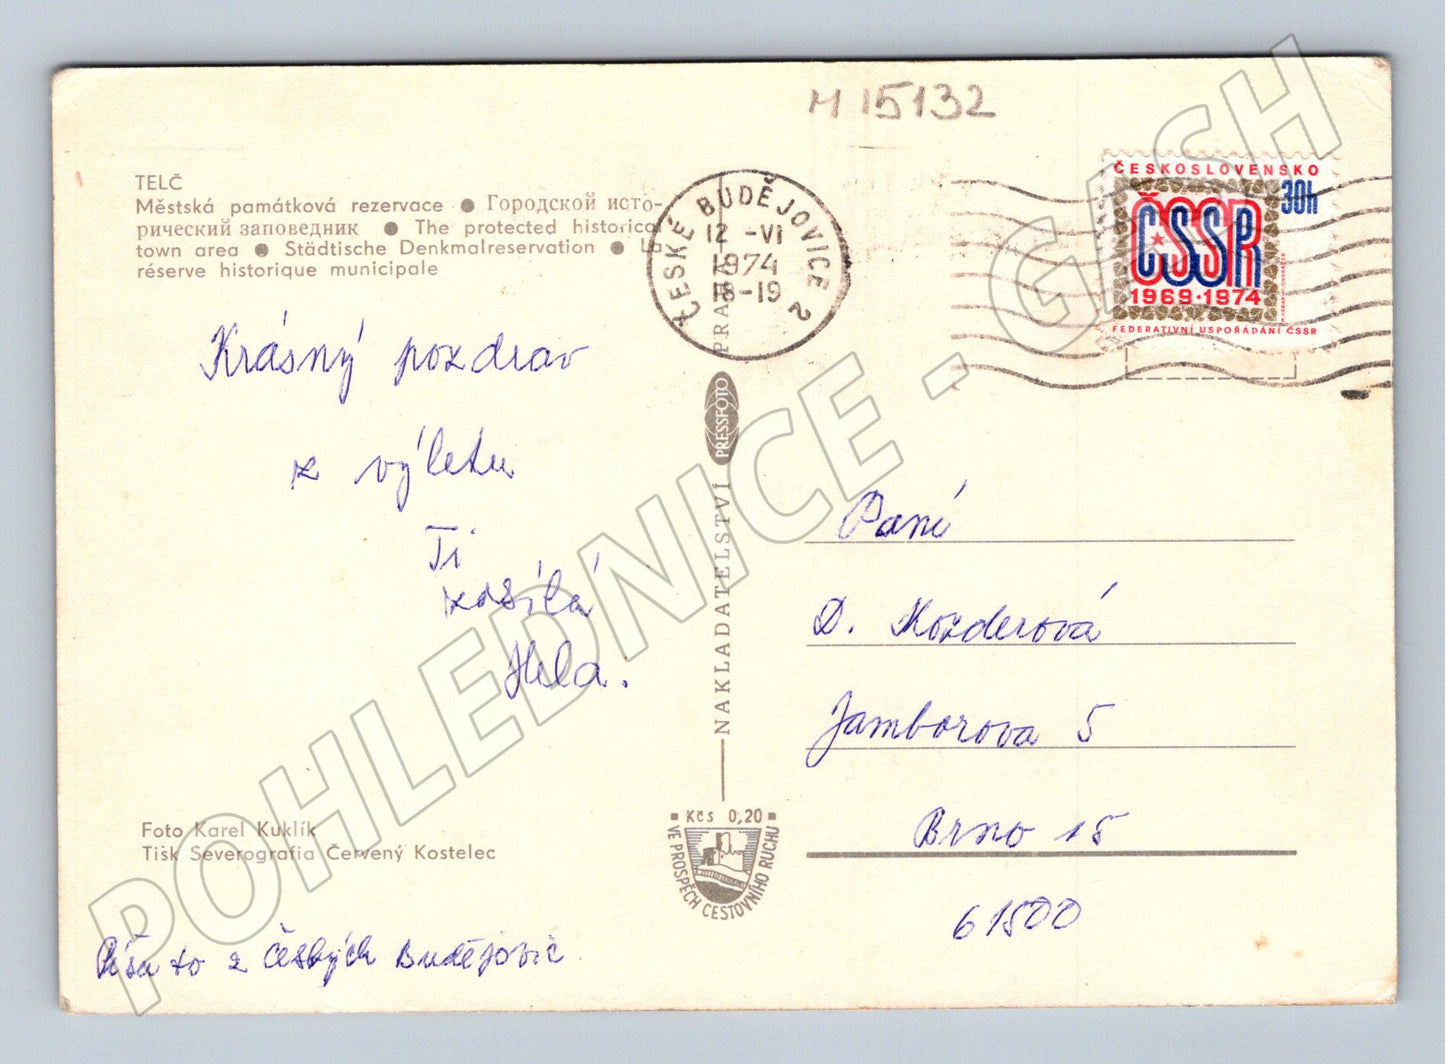 M 15132
TELČ
Městská památková rezervace ● Городской исто-
рический заповедник ● The protected historical
town area ● Städtische Denkmalreservation ● L
réserve historique municipale
ČESKÉ BUDĚJOVICE 2
12 -VI
1974
18-19
ČESKOSLOVENSKO
30h
ČSSR
1969·1974
FEDERATIVNÍ USPOŘÁDÁNÍ ČSSR
Krásný pozdrav
z výletu
Ti
zasílá
Hela.
NAKLADATELSTVÍ PRESSFOTO PRAHA
Paní
D. Kozderová
Jamborova 5
Brno 15
61500
Foto Karel Kuklík
Tisk Severografia Červený Kostelec
Kčs 0,20
VE PROSPĚCH CESTOVNÍHO RUCHU
Píšu to z Českých Budějovic.
POHLEDNICE - GASH